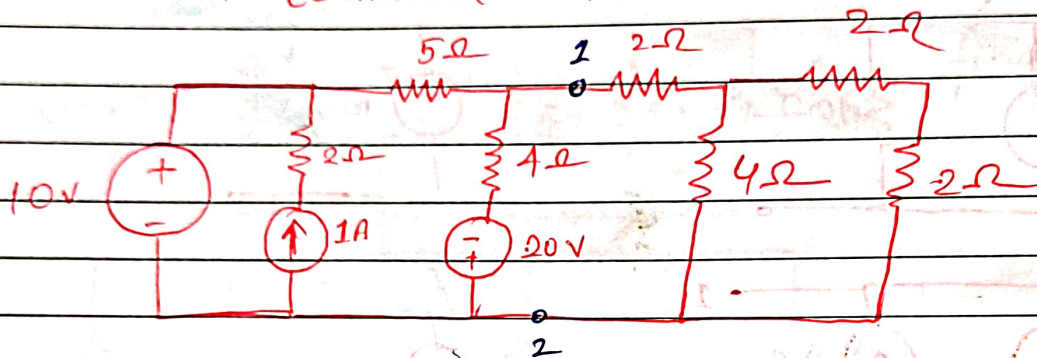 5Ω 1 2Ω 2Ω
10V + - 2Ω 4Ω 4Ω 2Ω
1A - + 20V
2